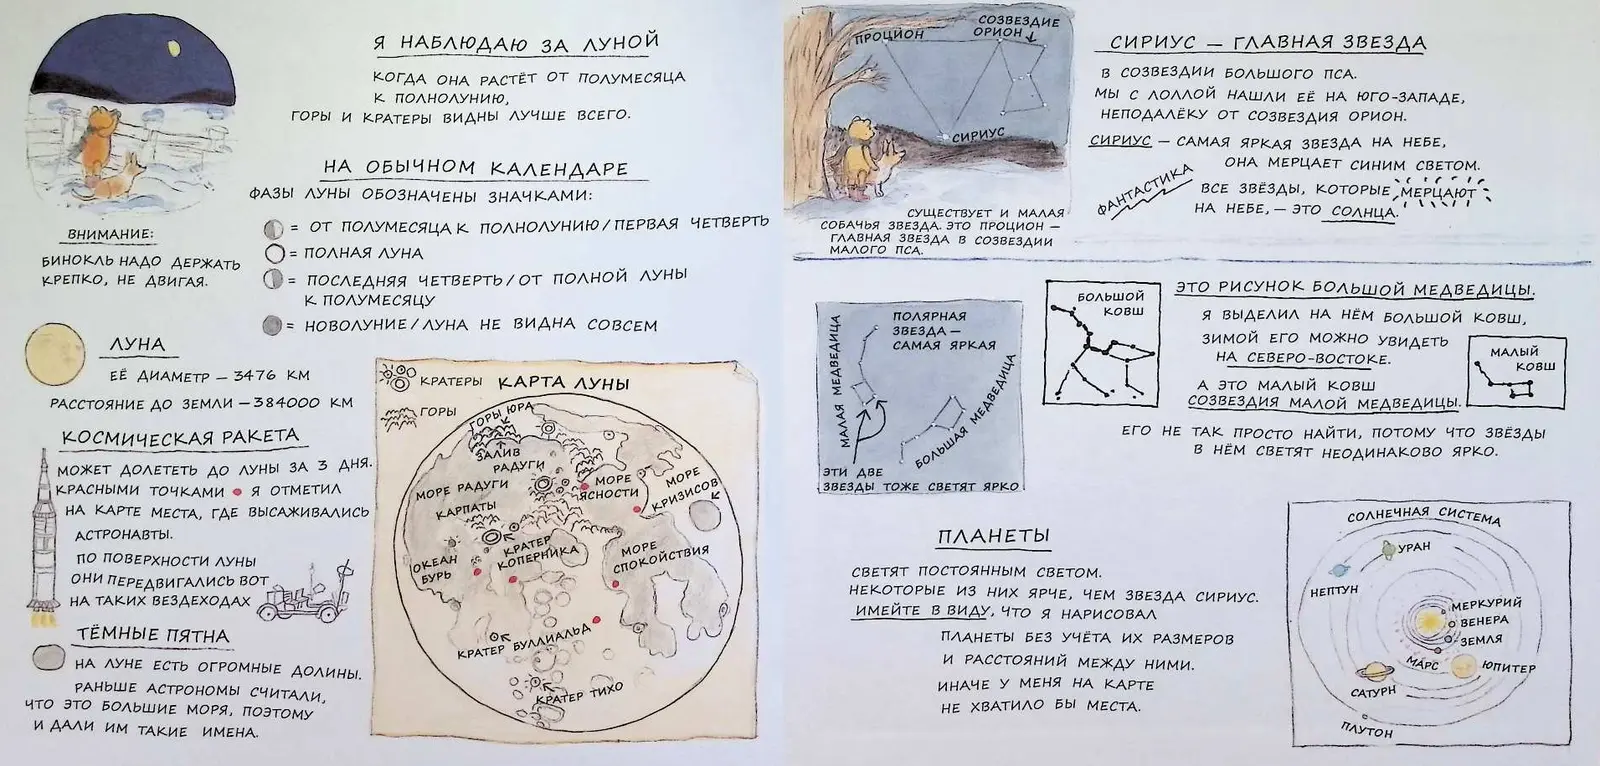 Я НАБЛЮДАЮ ЗА ЛУНОЙ
КОГДА ОНА РАСТЁТ ОТ ПОЛУМЕСЯЦА
К ПОЛНОЛУНИЮ,
ГОРЫ И КРАТЕРЫ ВИДНЫ ЛУЧШЕ ВСЕГО.
НА ОБЫЧНОМ КАЛЕНДАРЕ
ФАЗЫ ЛУНЫ ОБОЗНАЧЕНЫ ЗНАЧКАМИ:
= ОТ ПОЛУМЕСЯЦА К ПОЛНОЛУНИЮ/ПЕРВАЯ ЧЕТВЕРТЬ
= ПОЛНАЯ ЛУНА
= ПОСЛЕДНЯЯ ЧЕТВЕРТЬ/ОТ ПОЛНОЙ ЛУНЫ
К ПОЛУМЕСЯЦУ
= НОВОЛУНИЕ/ЛУНА НЕ ВИДНА СОВСЕМ
ВНИМАНИЕ:
БИНОКЛЬ НАДО ДЕРЖАТЬ
КРЕПКО, НЕ ДВИГАЯ.
ЛУНА
ЕЁ ДИАМЕТР – 3476 КМ
РАССТОЯНИЕ ДО ЗЕМЛИ – 384000 КМ
КОСМИЧЕСКАЯ РАКЕТА
МОЖЕТ ДОЛЕТЕТЬ ДО ЛУНЫ ЗА 3 ДНЯ.
КРАСНЫМИ ТОЧКАМИ Я ОТМЕТИЛ
НА КАРТЕ МЕСТА, ГДЕ ВЫСАЖИВАЛИСЬ
АСТРОНАВТЫ.
ПО ПОВЕРХНОСТИ ЛУНЫ
ОНИ ПЕРЕДВИГАЛИСЬ ВОТ
НА ТАКИХ ВЕЗДЕХОДАХ
ТЁМНЫЕ ПЯТНА
НА ЛУНЕ ЕСТЬ ОГРОМНЫЕ ДОЛИНЫ.
РАНЬШЕ АСТРОНОМЫ СЧИТАЛИ,
ЧТО ЭТО БОЛЬШИЕ МОРЯ, ПОЭТОМУ
И ДАЛИ ИМ ТАКИЕ ИМЕНА.
КРАТЕРЫ
КАРТА ЛУНЫ
ГОРЫ
ГОРЫ ЮРА
ЗАЛИВ
РАДУГИ
МОРЕ РАДУГИ
МОРЕ
ЯСНОСТИ
МОРЕ
КРИЗИСОВ
КАРПАТЫ
КРАТЕР
КОПЕРНИКА
ОКЕАН
БУРЬ
МОРЕ
СПОКОЙСТВИЯ
КРАТЕР БУЛЛИАЛЬД
КРАТЕР ТИХО
СОЗВЕЗДИЕ
ОРИОН
ПРОЦИОН
СИРИУС
СУЩЕСТВУЕТ И МАЛАЯ
СОБАЧЬЯ ЗВЕЗДА. ЭТО ПРОЦИОН –
ГЛАВНАЯ ЗВЕЗДА В СОЗВЕЗДИИ
МАЛОГО ПСА.
СИРИУС – ГЛАВНАЯ ЗВЕЗДА
В СОЗВЕЗДИИ БОЛЬШОГО ПСА.
МЫ С ЛОЛЛОЙ НАШЛИ ЕЁ НА ЮГО-ЗАПАДЕ,
НЕПОДАЛЁКУ ОТ СОЗВЕЗДИЯ ОРИОН.
СИРИУС – САМАЯ ЯРКАЯ ЗВЕЗДА НА НЕБЕ,
ОНА МЕРЦАЕТ СИНИМ СВЕТОМ.
ФАНТАСТИКА
ВСЕ ЗВЁЗДЫ, КОТОРЫЕ МЕРЦАЮТ
НА НЕБЕ, – ЭТО СОЛНЦА.
ПОЛЯРНАЯ
ЗВЕЗДА –
САМАЯ ЯРКАЯ
МАЛАЯ МЕДВЕДИЦА
БОЛЬШАЯ МЕДВЕДИЦА
ЭТИ ДВЕ
ЗВЕЗДЫ ТОЖЕ СВЕТЯТ ЯРКО
БОЛЬШОЙ
КОВШ
ЭТО РИСУНОК БОЛЬШОЙ МЕДВЕДИЦЫ.
Я ВЫДЕЛИЛ НА НЁМ БОЛЬШОЙ КОВШ,
ЗИМОЙ ЕГО МОЖНО УВИДЕТЬ
НА СЕВЕРО-ВОСТОКЕ.
А ЭТО МАЛЫЙ КОВШ
СОЗВЕЗДИЯ МАЛОЙ МЕДВЕДИЦЫ.
МАЛЫЙ
КОВШ
ЕГО НЕ ТАК ПРОСТО НАЙТИ, ПОТОМУ ЧТО ЗВЁЗДЫ
В НЁМ СВЕТЯТ НЕОДИНАКОВО ЯРКО.
ПЛАНЕТЫ
СВЕТЯТ ПОСТОЯННЫМ СВЕТОМ.
НЕКОТОРЫЕ ИЗ НИХ ЯРЧЕ, ЧЕМ ЗВЕЗДА СИРИУС.
ИМЕЙТЕ В ВИДУ, ЧТО Я НАРИСОВАЛ
ПЛАНЕТЫ БЕЗ УЧЁТА ИХ РАЗМЕРОВ
И РАССТОЯНИЙ МЕЖДУ НИМИ.
ИНАЧЕ У МЕНЯ НА КАРТЕ
НЕ ХВАТИЛО БЫ МЕСТА.
СОЛНЕЧНАЯ СИСТЕМА
УРАН
НЕПТУН
МЕРКУРИЙ
ВЕНЕРА
ЗЕМЛЯ
МАРС
ЮПИТЕР
САТУРН
ПЛУТОН